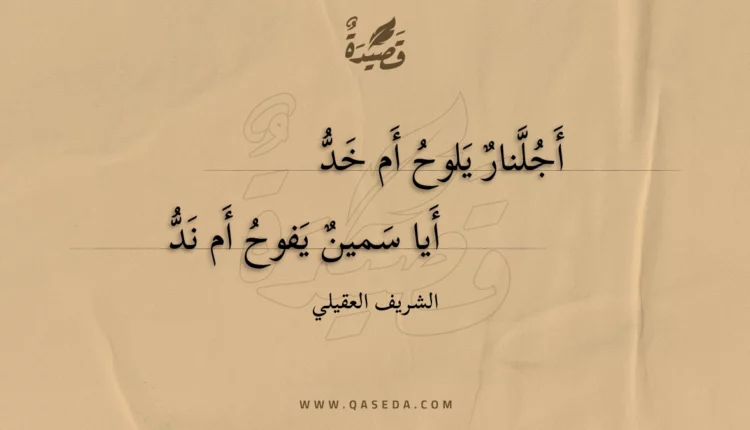 قَصِيْدَةٌ
أَجُلَّنارٌ يَلوحُ أَم خَدُّ
أَيا سَمينٌ يَفوحُ أَم نَدُّ
الشريف العقيلي
WWW.QASEDA.COM